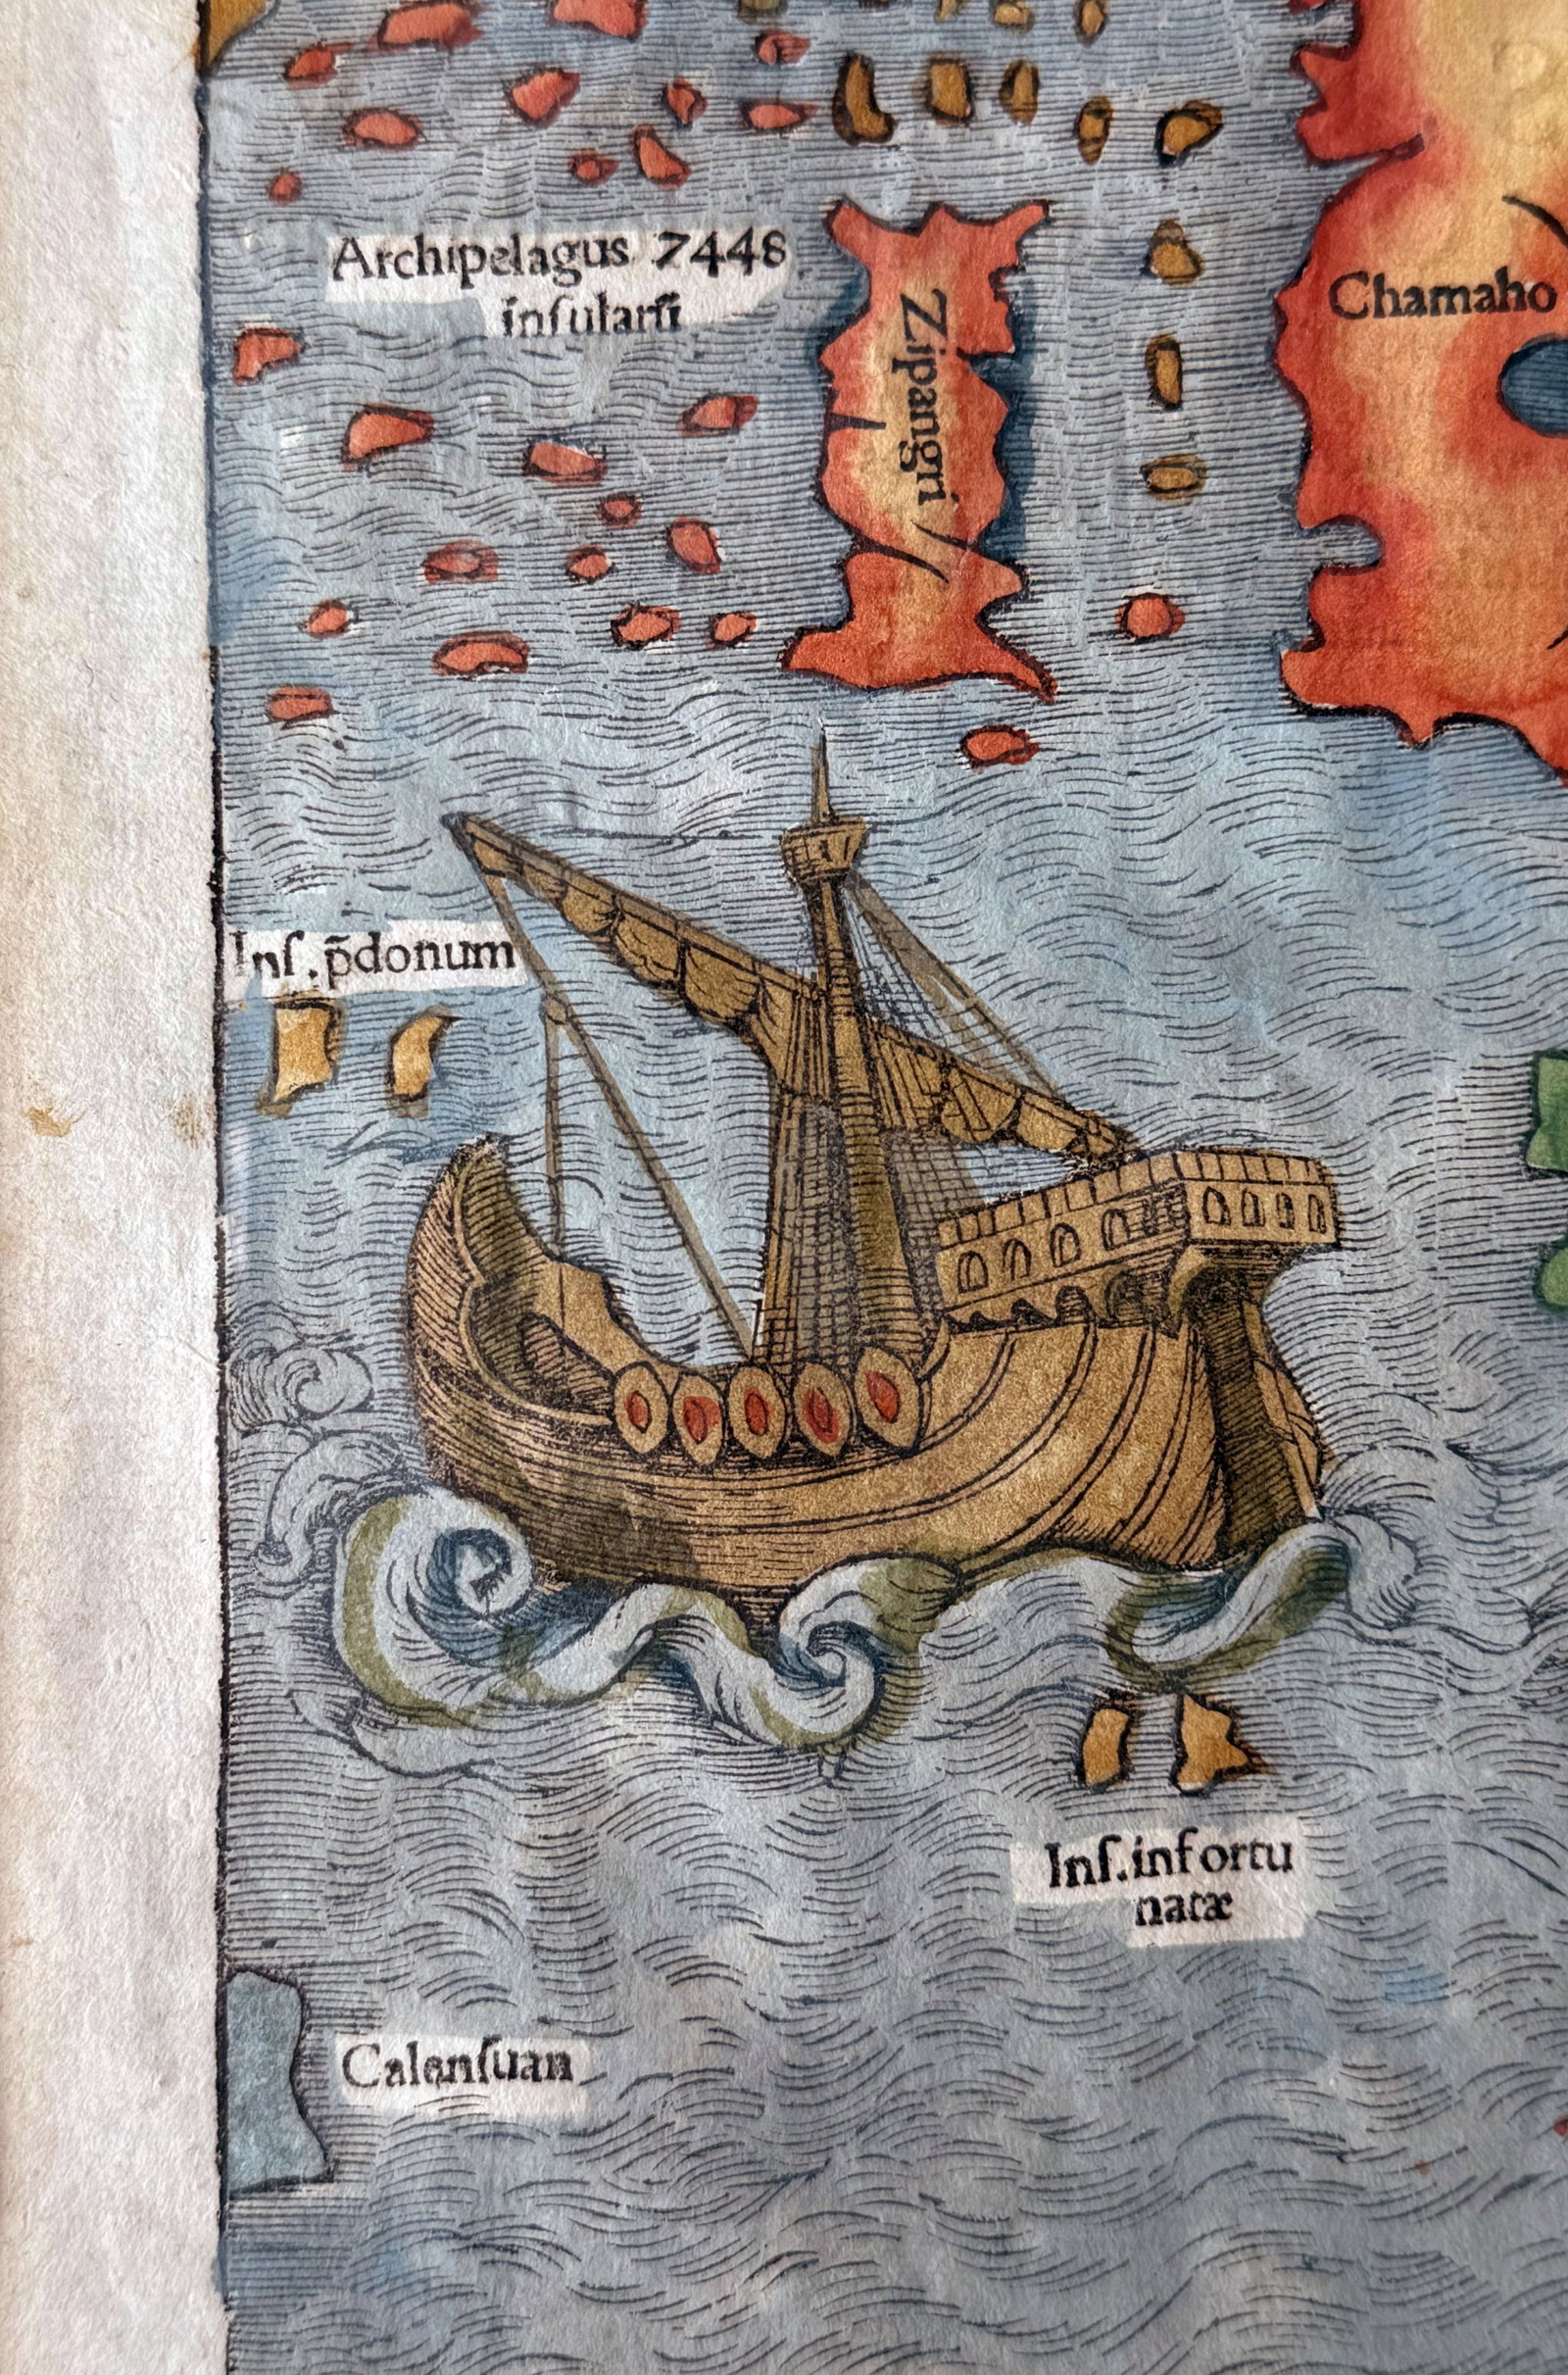 Archipelagus 7448
inſularũ
Zipangri
Chamaho
Inſ. p̄donum
Inſ. infortu
natæ
Calenſuan